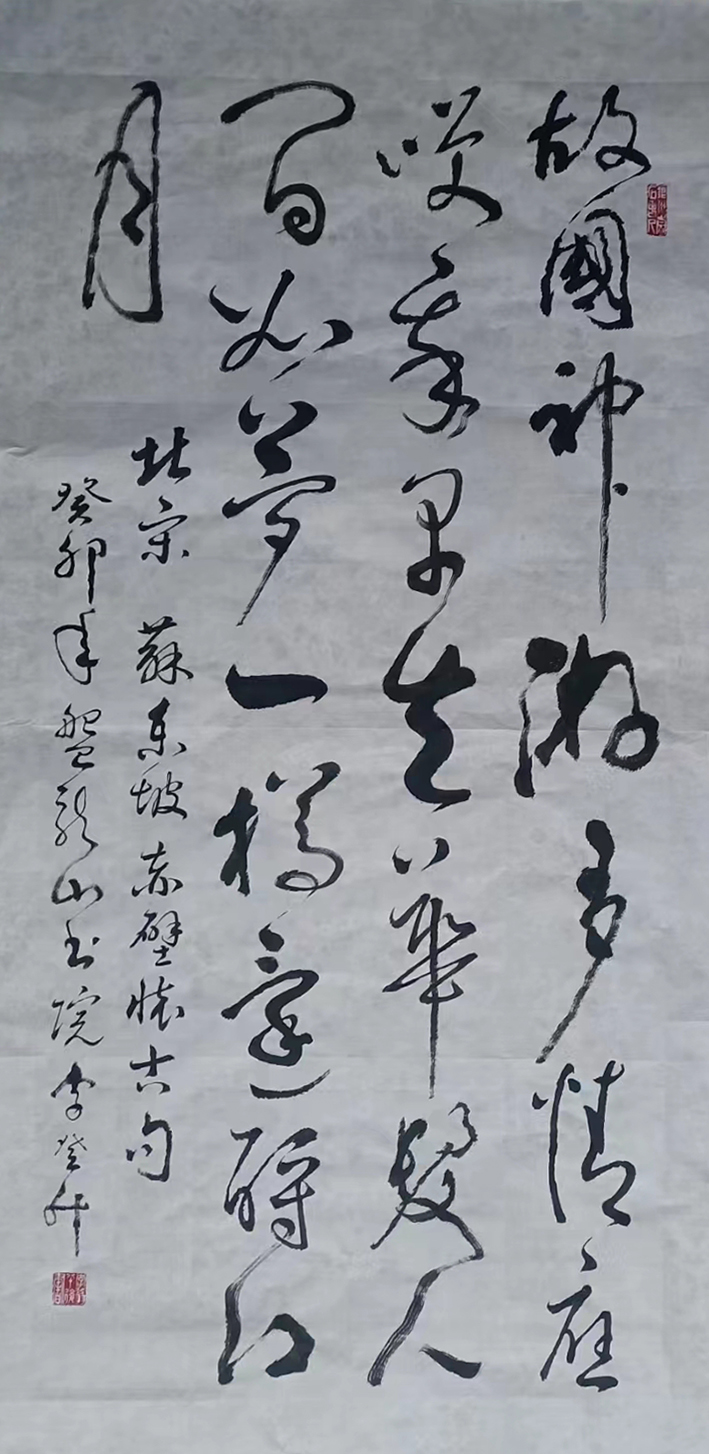 故國神游多情應
咲我早生華髮人
間如夢一樽還酹江
月
北宋 蘇東坡赤壁懷古句
癸卯年盤龍山书院李登升